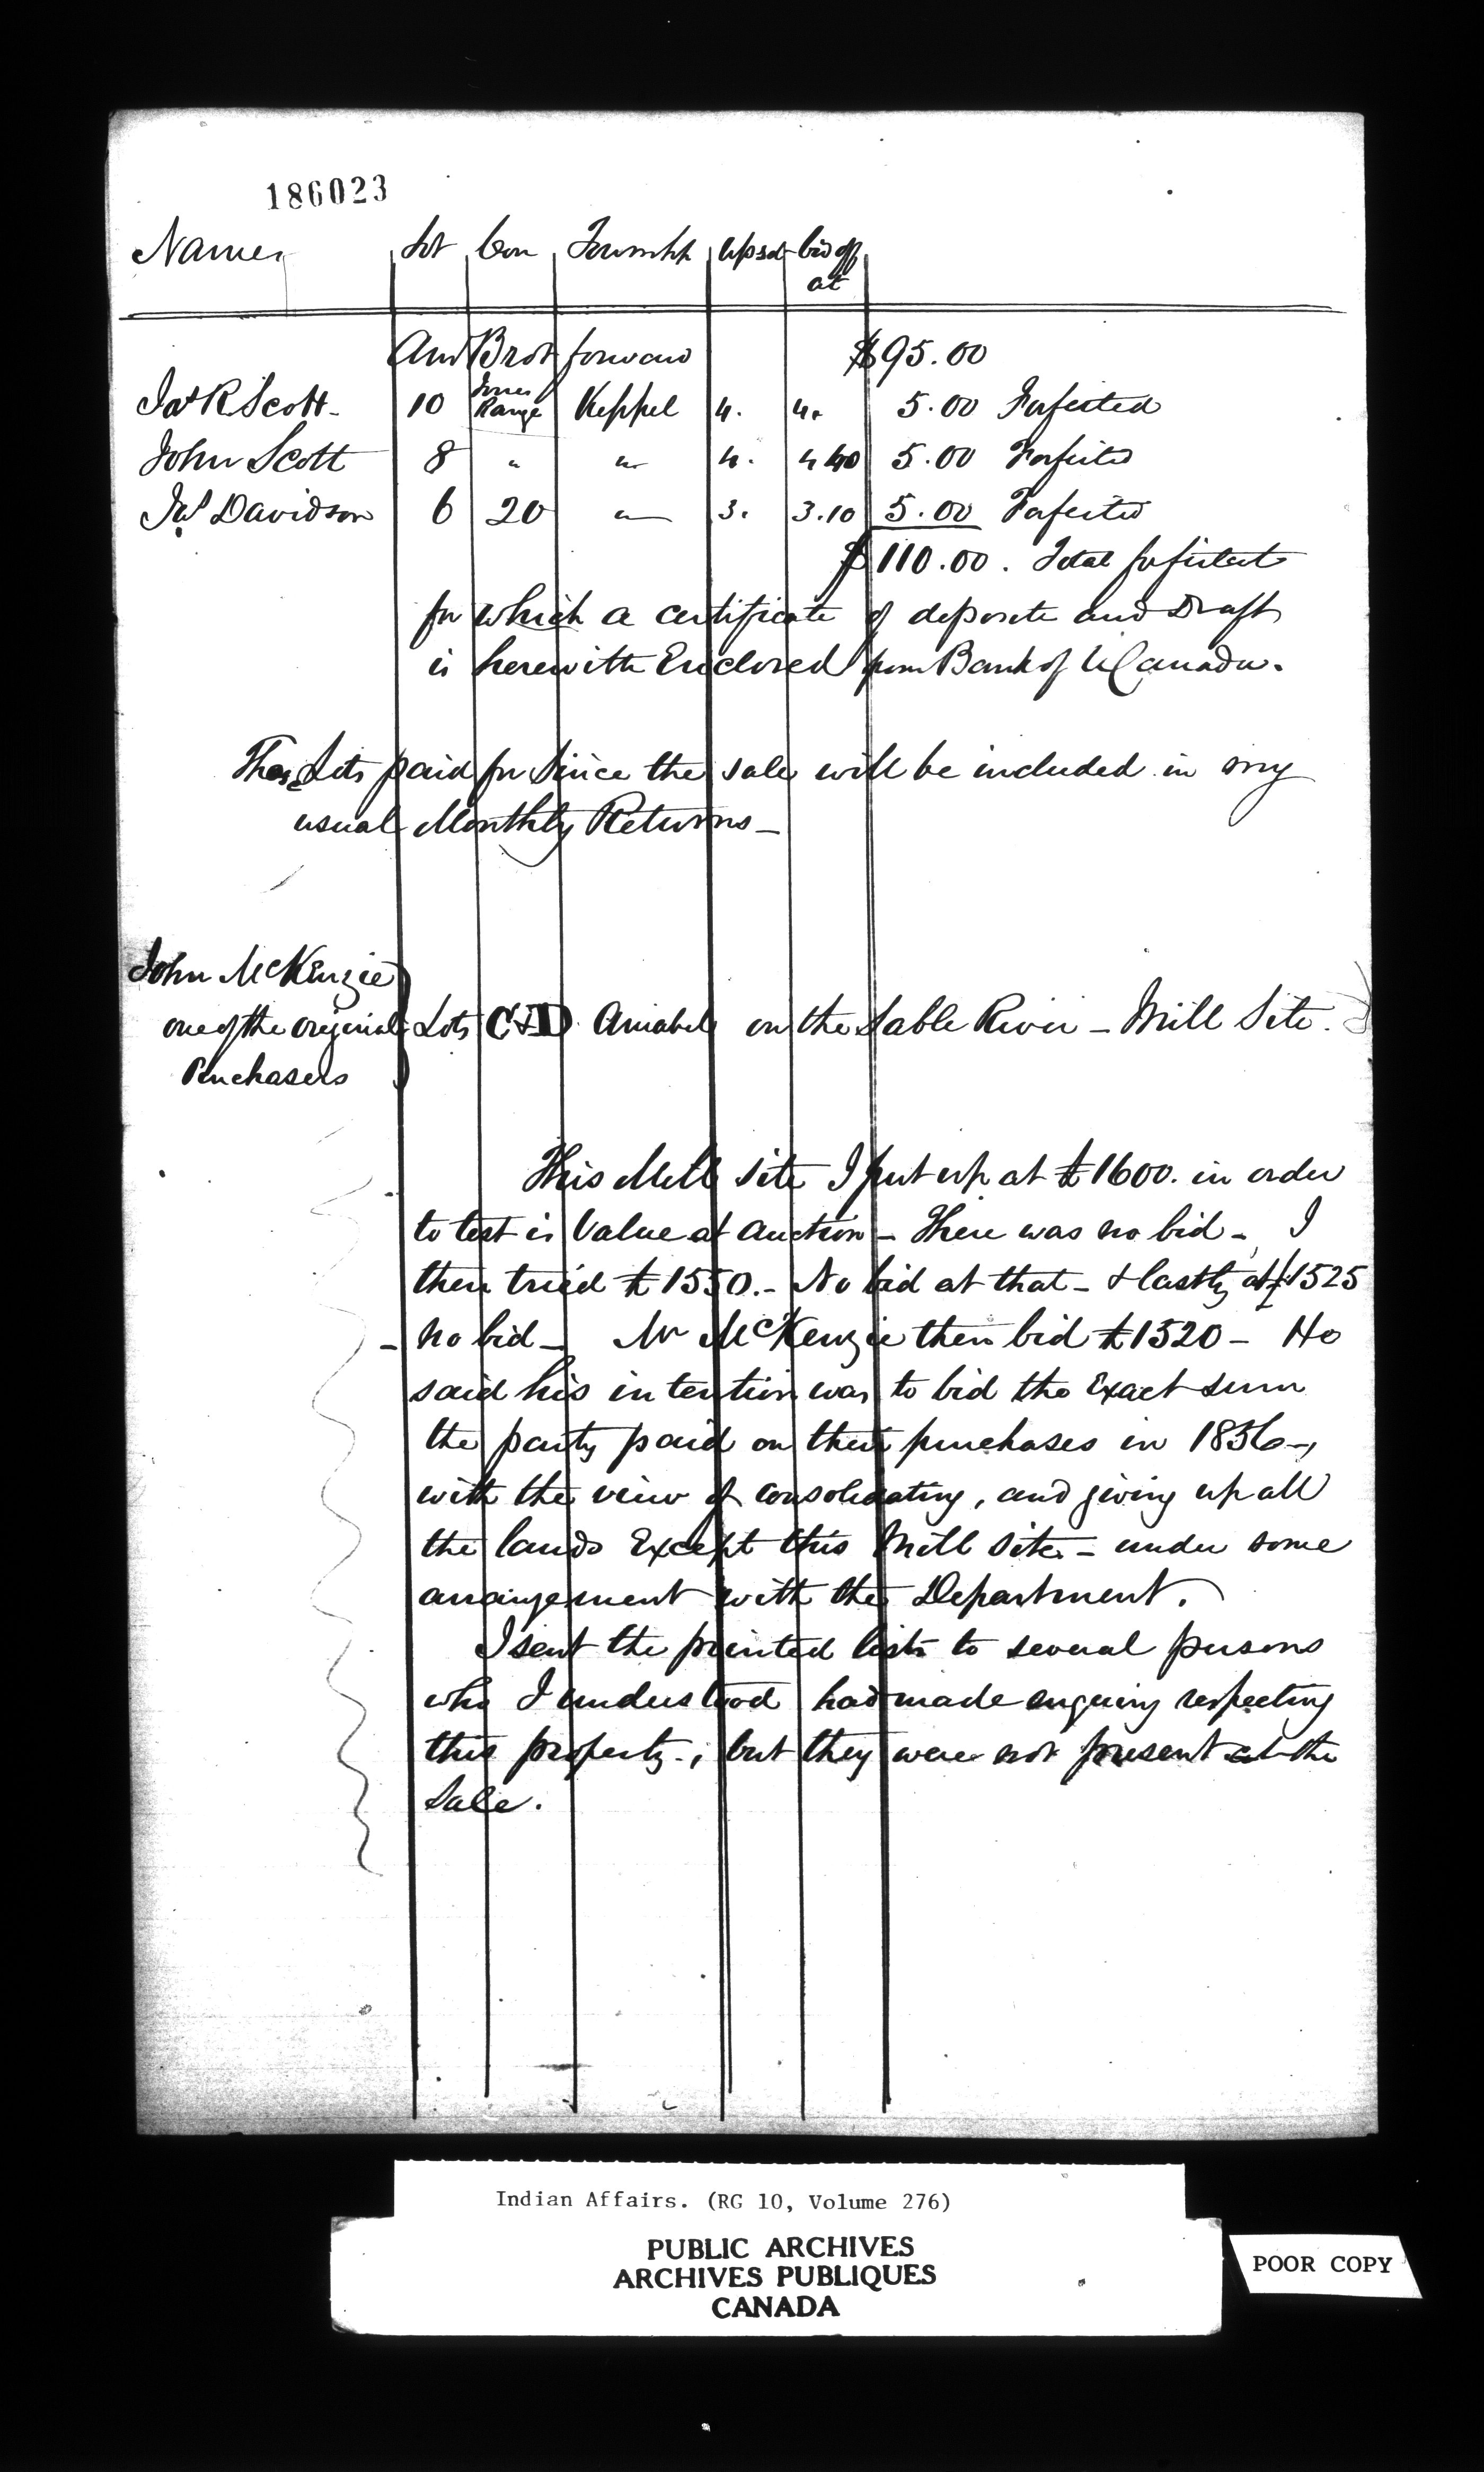 186023
Names Lot Con Townshp upset bid off
at
Amt Brot forward $95.00
Jas R Scott - 10 Jones Range Keppel 4. 4. 5.00 Forfeited
John Scott 8 " " 4. 4 40 5.00 Forfeited
Jas Davidson 6 20 " 3. 3.10 5.00 Forfeited
$110.00. Total forfeited
for which a certificate of deposite and Draft
is herewith Enclosed from Bank of U Canada.
Those Lots paid for since the sale will be included in my
usual Monthly Returns -
John McKenzie
one of the original Lots C & D Amabel on the Sable River - Mill Site.
Purchasers
This Mill site I put up at £1600. in order
to test is Value at Auction - There was no bid - I
then tried £1550. - No bid at that - & lastly at £1525
- no bid - Mr McKenzie then bid £1520 - He
said his intention was to bid the Exact sum
the party paid on their purchases in 1856 -,
with the view of consolidating, and giving up all
the lands Except this Mill site - under some
arrangement with the Department.
I sent the printed lists to several persons
who I understood had made enquiry respecting
this property -, but they were not present at the
Sale.
Indian Affairs. (RG 10, Volume 276)
PUBLIC ARCHIVES
ARCHIVES PUBLIQUES
CANADA
POOR COPY